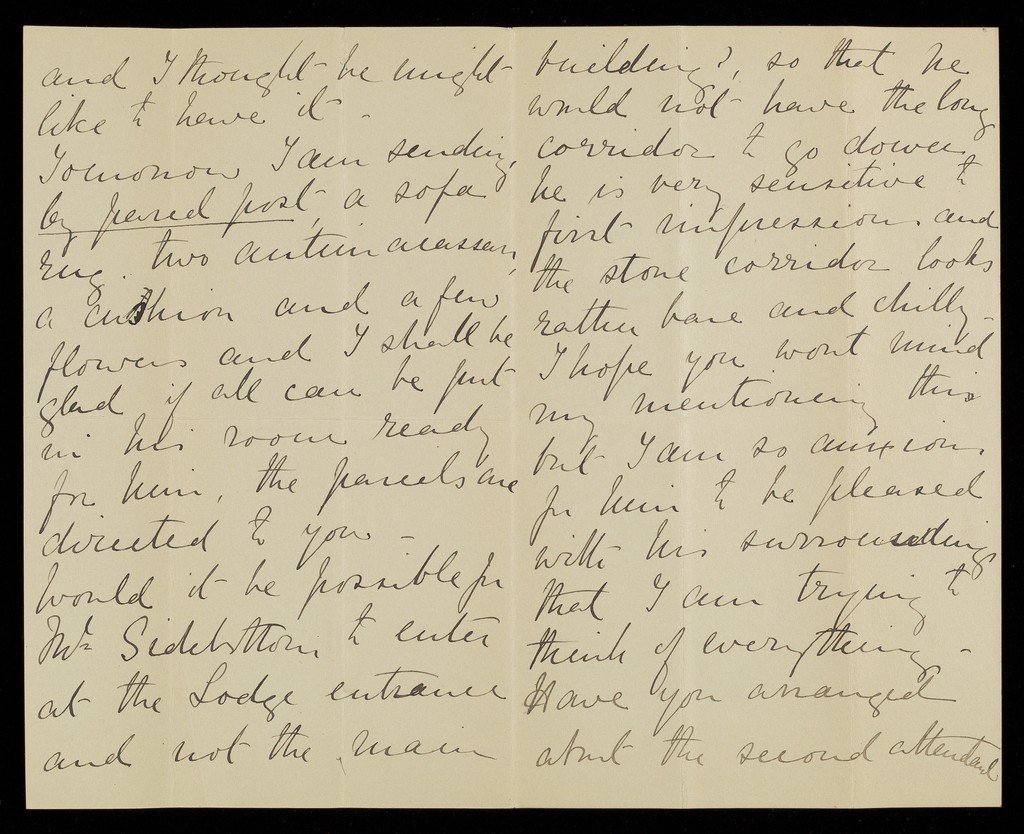 and I thought he might
like to have it -
Tomorrow I am sending,
by parcel post, a sofa
rug. two antimacassars,
a cushion and a few
flowers and I shall be
glad if all can be put
in his room ready
for him, the parcels are
directed to you -
Would it be possible for
Mr Sidebottom to enter
at the Lodge entrance
and not the main
building?, so that he
would not have the long
corridor to go down,
he is very sensitive to
first impression. and
the stone corridor looks
rather bare and chilly -
I hope you wont mind
my mentioning this
but I am so anxious
for him to be pleased
with his surroundings
that I am trying to
think of everything -
Have you arranged
about the second attendant